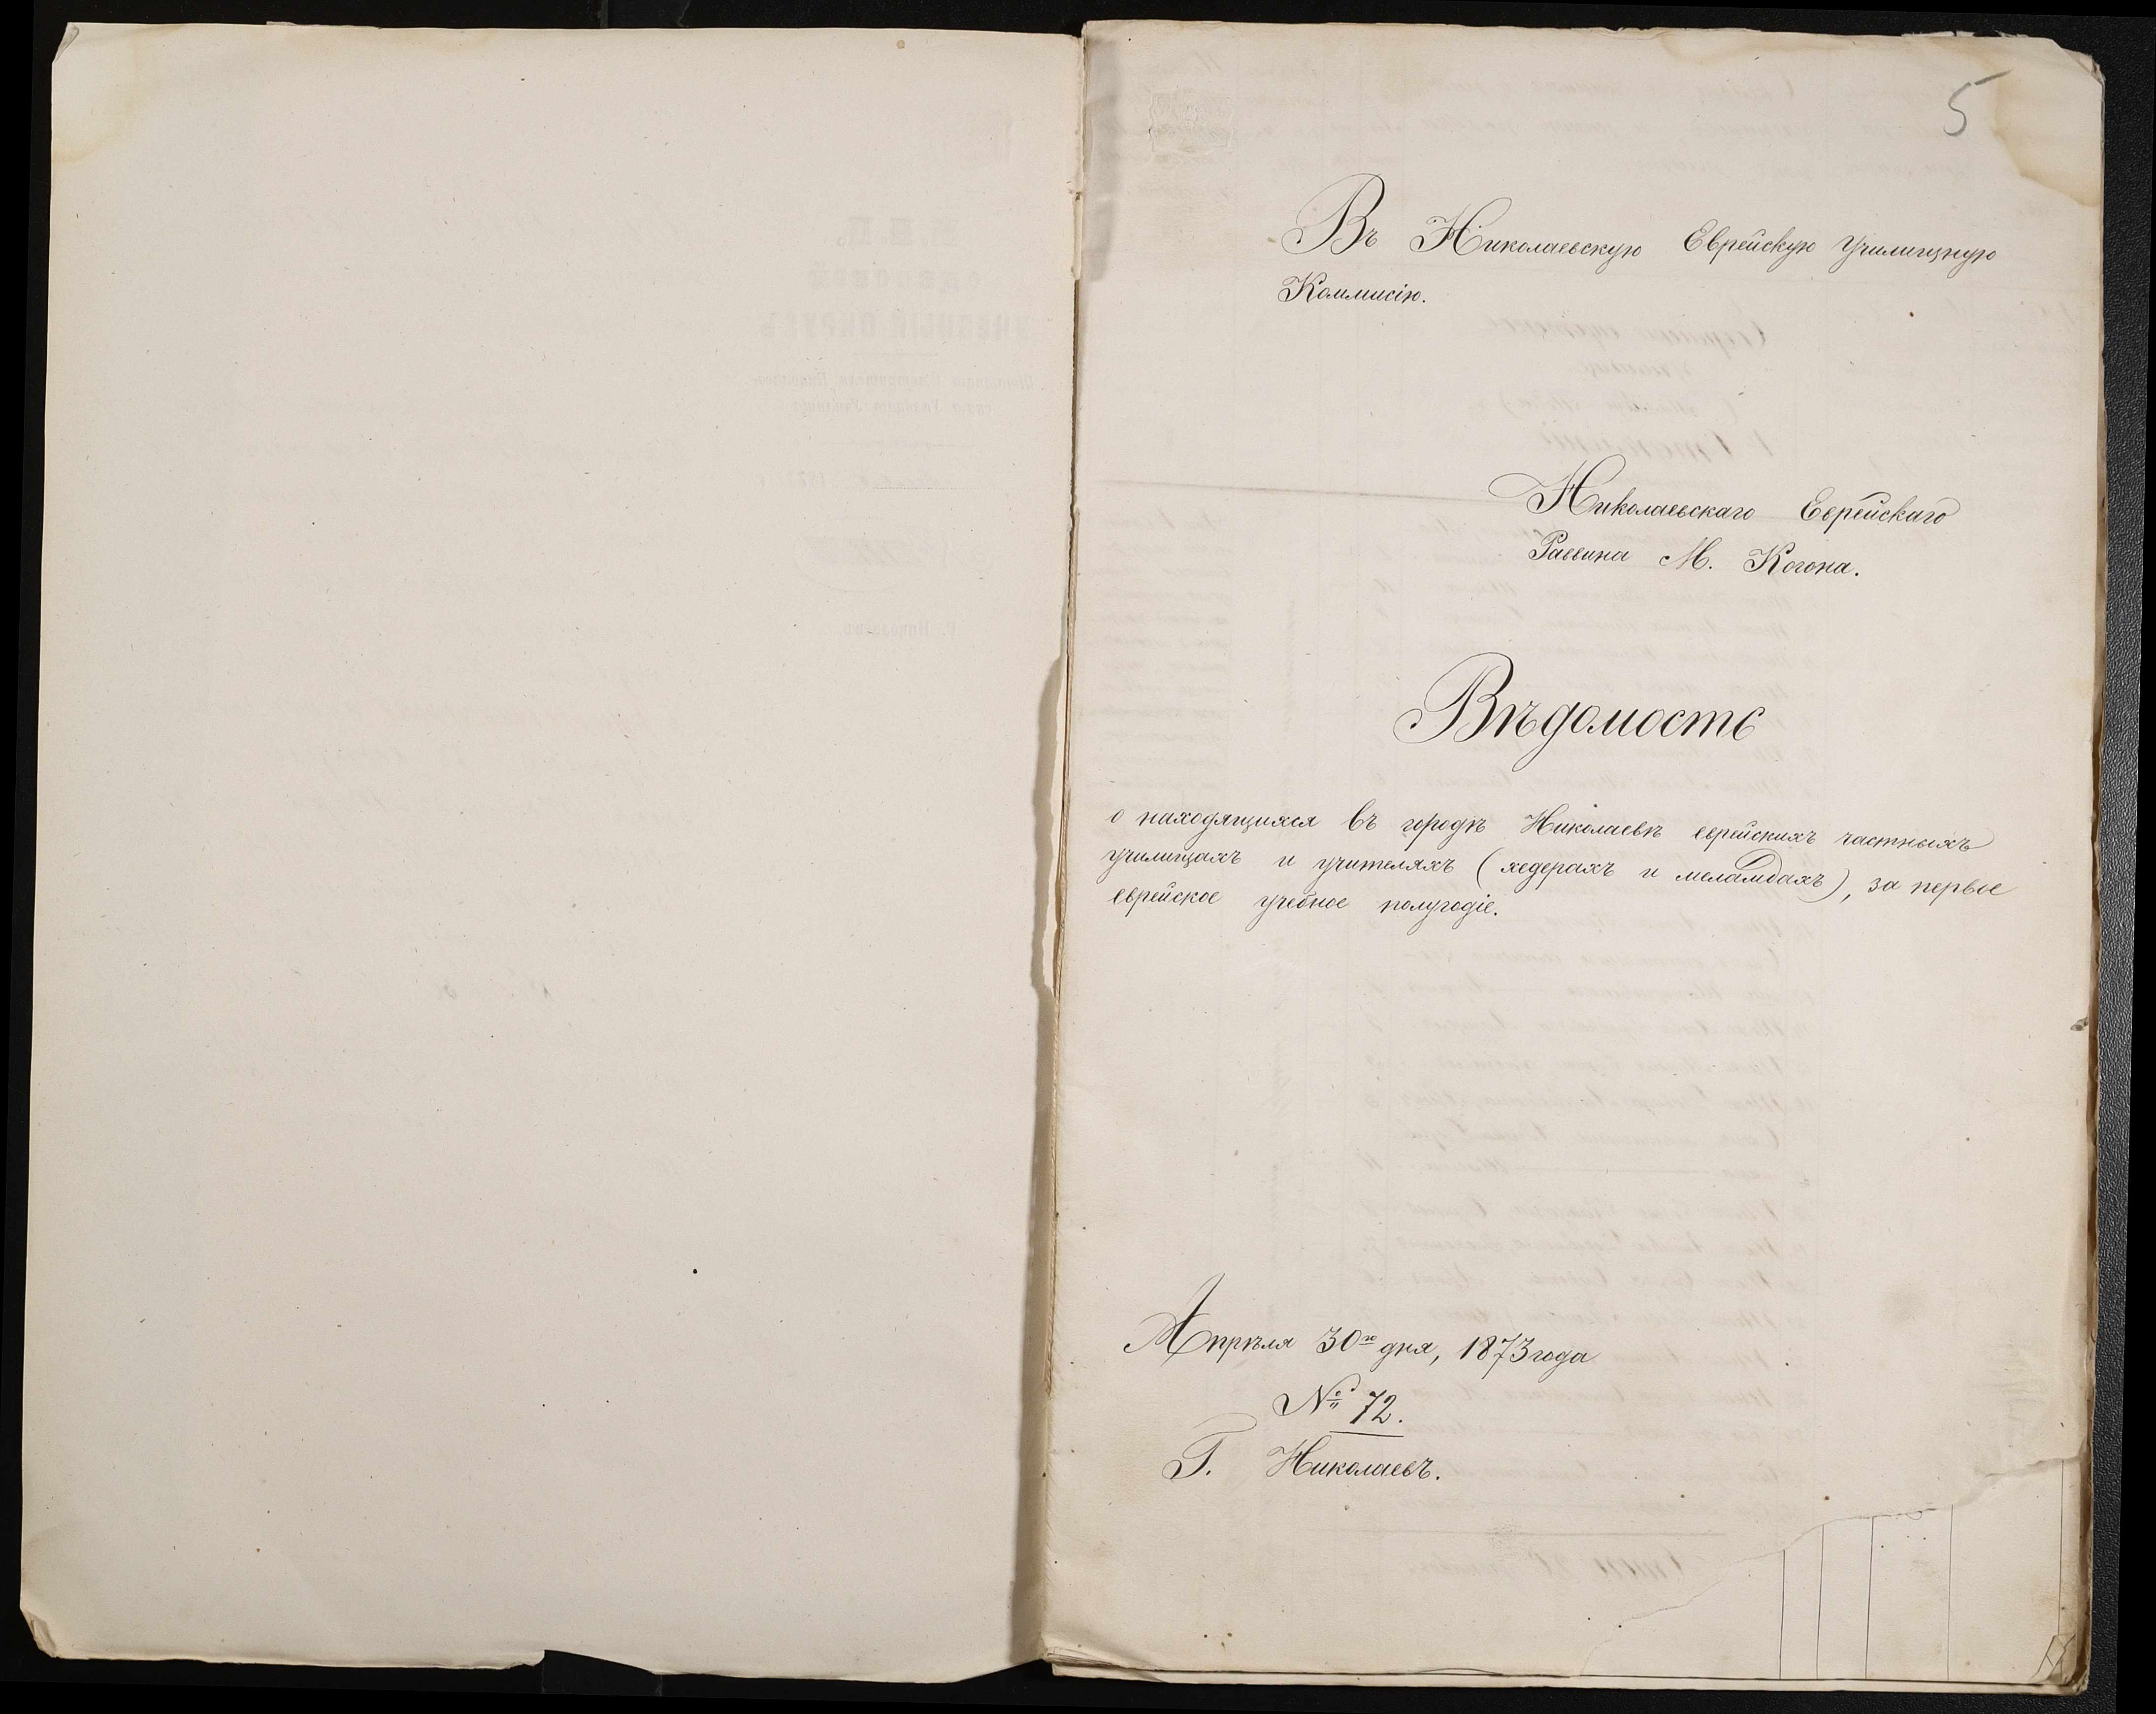 5
Въ Николаевскую Еврейскую Училищную
Коммисію.
Николаевскаго Еврейскаго
Раввина М. Когона.
Вѣдомость
о находящихся въ городѣ Николаевѣ еврейскихъ частныхъ
училищахъ и учителяхъ (хедерахъ и меламдахъ), за первое
еврейское учебное полугодіе.
Апрѣля 30го дня, 1873 года
№ 72.
Г. Николаевъ.